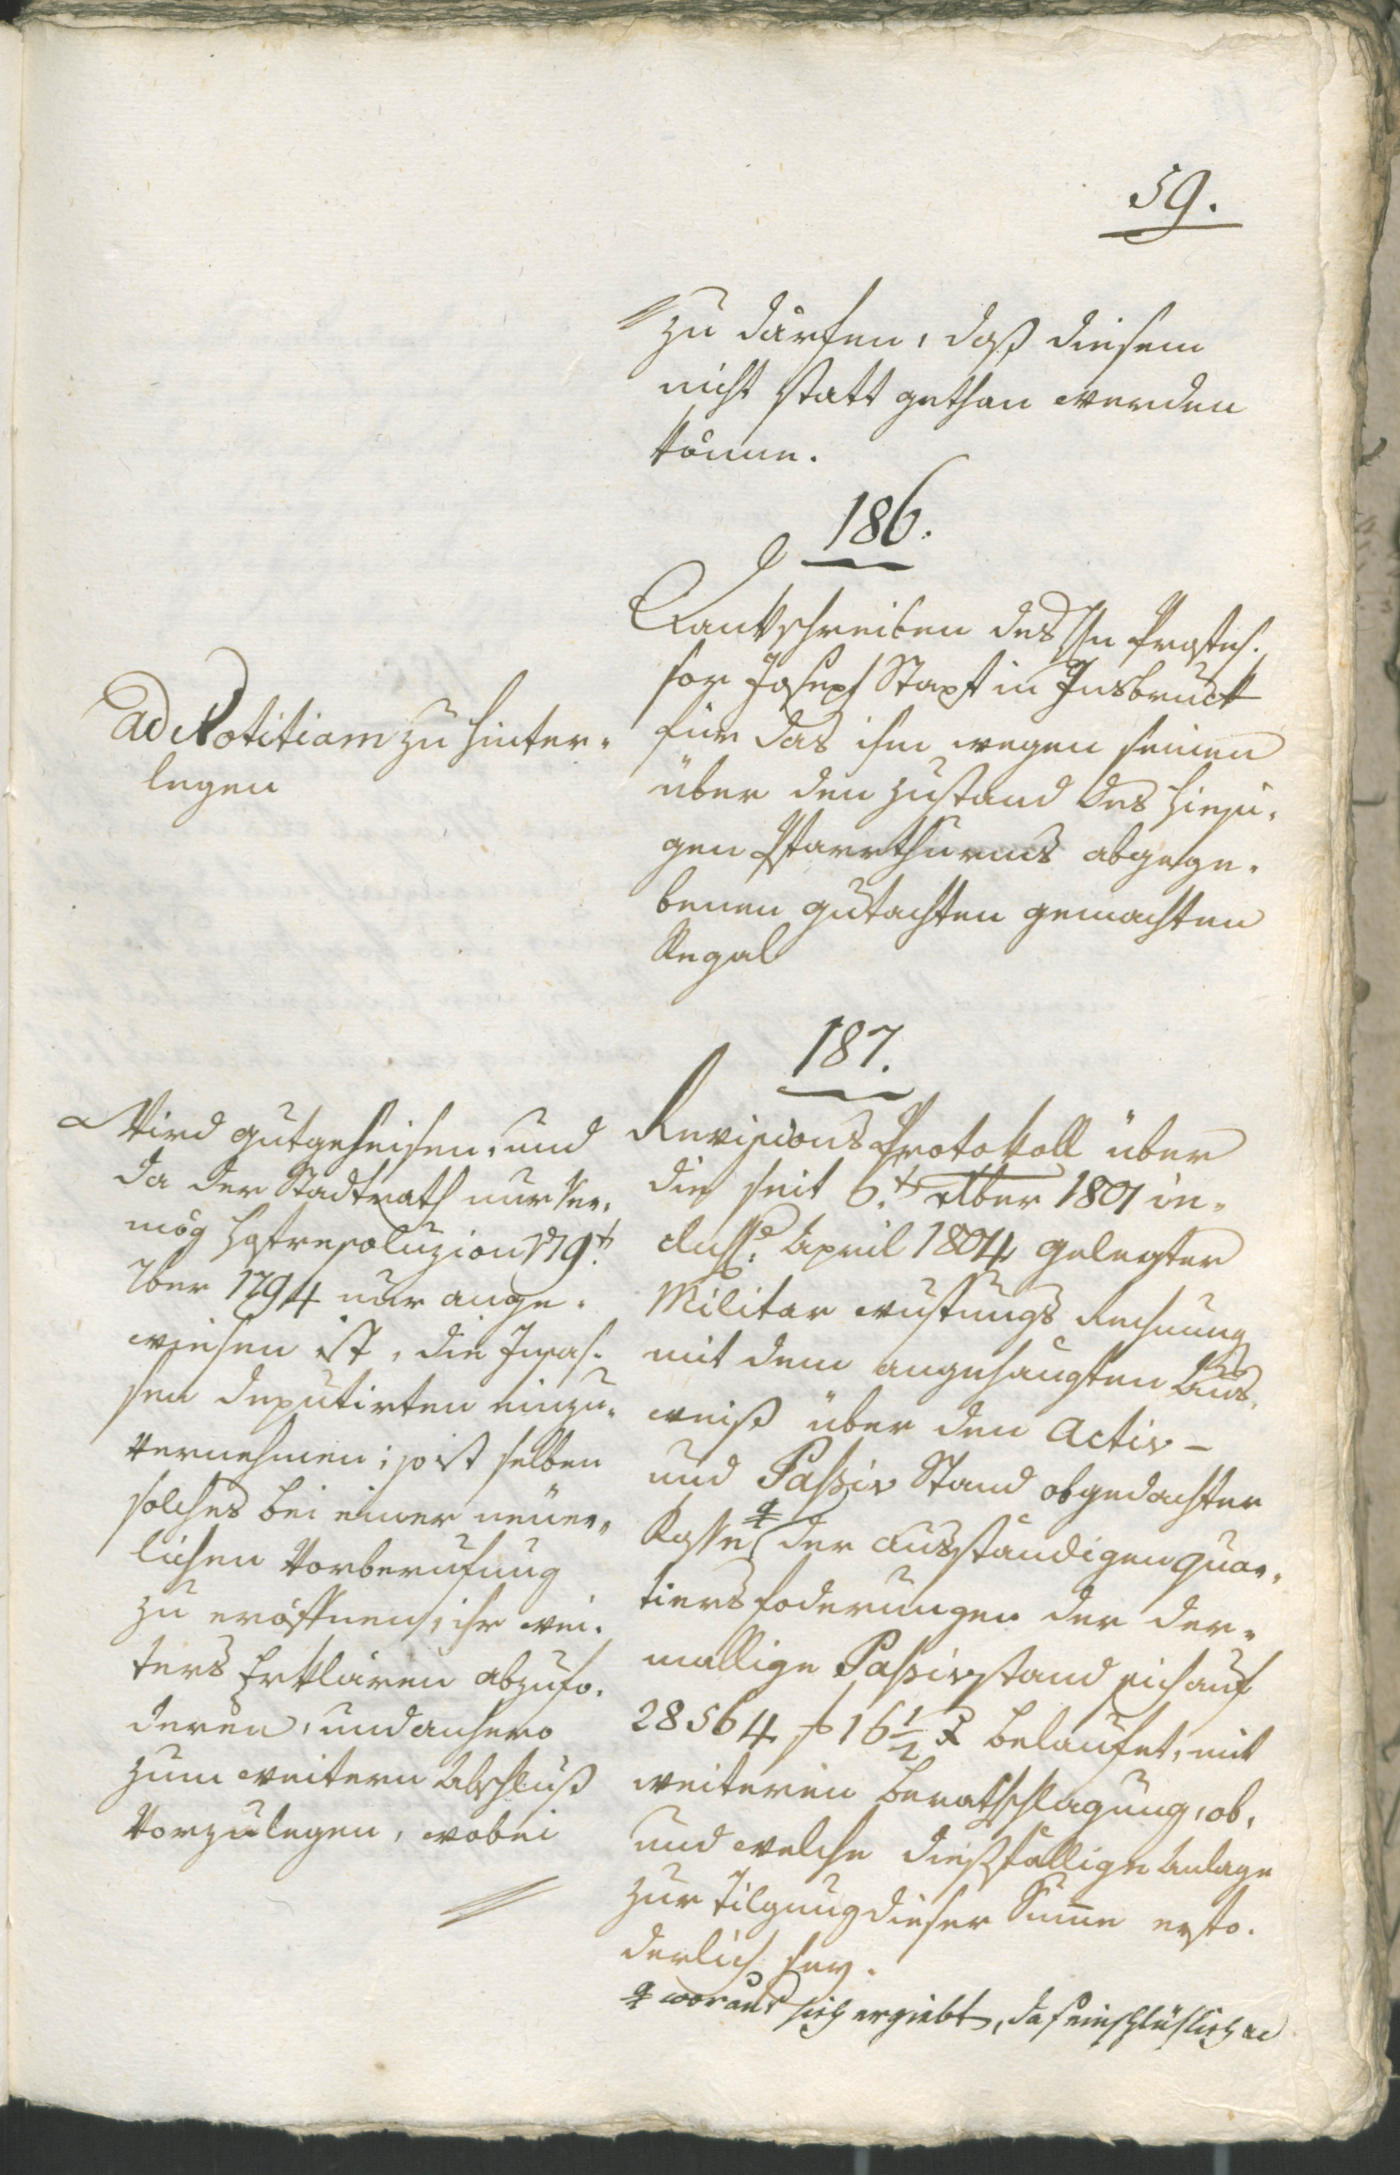 59.
zu därfen, daß diesem
nicht statt gethan werden
könne.
186.
Dankschreiben des Hn Profes-
sor Joseph Stapf in Insbruck
für das ihm wegen seinen
über den Zustand des hiesi-
gen Pfarrthurms abgege-
benen gutachten gemachten
Regal
ad Notitiam zu hinter-
legen
187.
Revisions Protokoll über
die seit 6.t 8ber 1801 in-
cluss. April 1804 gelegter
Militar Rechnung
mit dem angehängten Aus-
weiß über den Activ-
und Passiv Stand obgedachter
Kasse, der ausständigen quar-
tiersfoderungen der der-
mallige Passivstand sich auf
28564 f 16 1/2 x belaufet, mit
weiteren Berathschlagung, ob,
und welche dießfällige Anlage
zur Tilgung dieser Summe erfo-
derlich sey.
worauß sich ergiebt, daß einschlüßlich
Wird gutgeheisen, und
da der Stadtrath nur Ver-
mög Hofresoluzion 19t
7ber 1794 nur ange-
wiesen ist, die Insas-
sen deputirten einzu-
vernehmen; so ist selben
solches bei einer neüer-
lichen Vorberufung
zu eröffnen, ihr wei-
ters Erklären abzufo-
deren, und anhero
zum weitern Abschluß
Vorzulegen, wobei